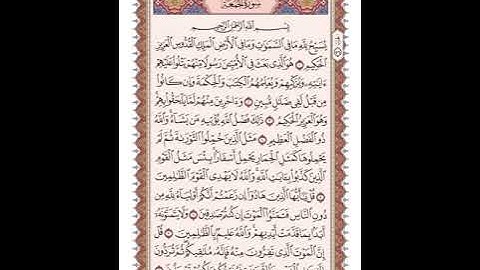 سورة الجمعة
بِسْمِ اللَّهِ الرَّحْمَٰنِ الرَّحِيمِ
يُسَبِّحُ لِلَّهِ مَا فِي السَّمَٰوَٰتِ وَمَا فِي الْأَرْضِ الْمَلِكِ الْقُدُّوسِ الْعَزِيزِ
الْحَكِيمِ ۝ هُوَ الَّذِي بَعَثَ فِي الْأُمِّيِّينَ رَسُولًا مِّنْهُمْ يَتْلُوا عَلَيْهِمْ
ءَايَٰتِهِ وَيُزَكِّيهِمْ وَيُعَلِّمُهُمُ الْكِتَٰبَ وَالْحِكْمَةَ وَإِن كَانُوا
مِن قَبْلُ لَفِي ضَلَٰلٍ مُّبِينٍ ۝ وَءَاخَرِينَ مِنْهُمْ لَمَّا يَلْحَقُوا بِهِمْ
وَهُوَ الْعَزِيزُ الْحَكِيمُ ۝ ذَٰلِكَ فَضْلُ اللَّهِ يُؤْتِيهِ مَن يَشَاءُ وَاللَّهُ
ذُو الْفَضْلِ الْعَظِيمِ ۝ مَثَلُ الَّذِينَ حُمِّلُوا التَّوْرَىٰةَ ثُمَّ لَمْ
يَحْمِلُوهَا كَمَثَلِ الْحِمَارِ يَحْمِلُ أَسْفَارًا بِئْسَ مَثَلُ الْقَوْمِ
الَّذِينَ كَذَّبُوا بِـَٔايَٰتِ اللَّهِ وَاللَّهُ لَا يَهْدِي الْقَوْمَ الظَّٰلِمِينَ
۝ قُلْ يَٰأَيُّهَا الَّذِينَ هَادُوا إِن زَعَمْتُمْ أَنَّكُمْ أَوْلِيَاءُ لِلَّهِ مِن
دُونِ النَّاسِ فَتَمَنَّوُا الْمَوْتَ إِن كُنتُمْ صَٰدِقِينَ ۝ وَلَا يَتَمَنَّوْنَهُ
أَبَدًا بِمَا قَدَّمَتْ أَيْدِيهِمْ وَاللَّهُ عَلِيمٌ بِالظَّٰلِمِينَ ۝ قُلْ
إِنَّ الْمَوْتَ الَّذِي تَفِرُّونَ مِنْهُ فَإِنَّهُ مُلَٰقِيكُمْ ثُمَّ تُرَدُّونَ